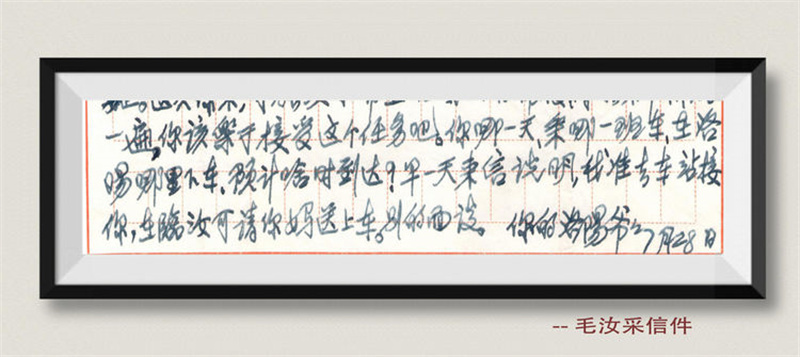 一遍,你该乐于接受这个任务吧。你哪一天,乘哪一班车,在洛
阳哪里下车,预计啥时到达?早一天来信说明,我准去车站接
你,在临汝可请你妈送上车。别的面谈。 你的洛阳爷爷 7月28日
-- 毛汝采信件